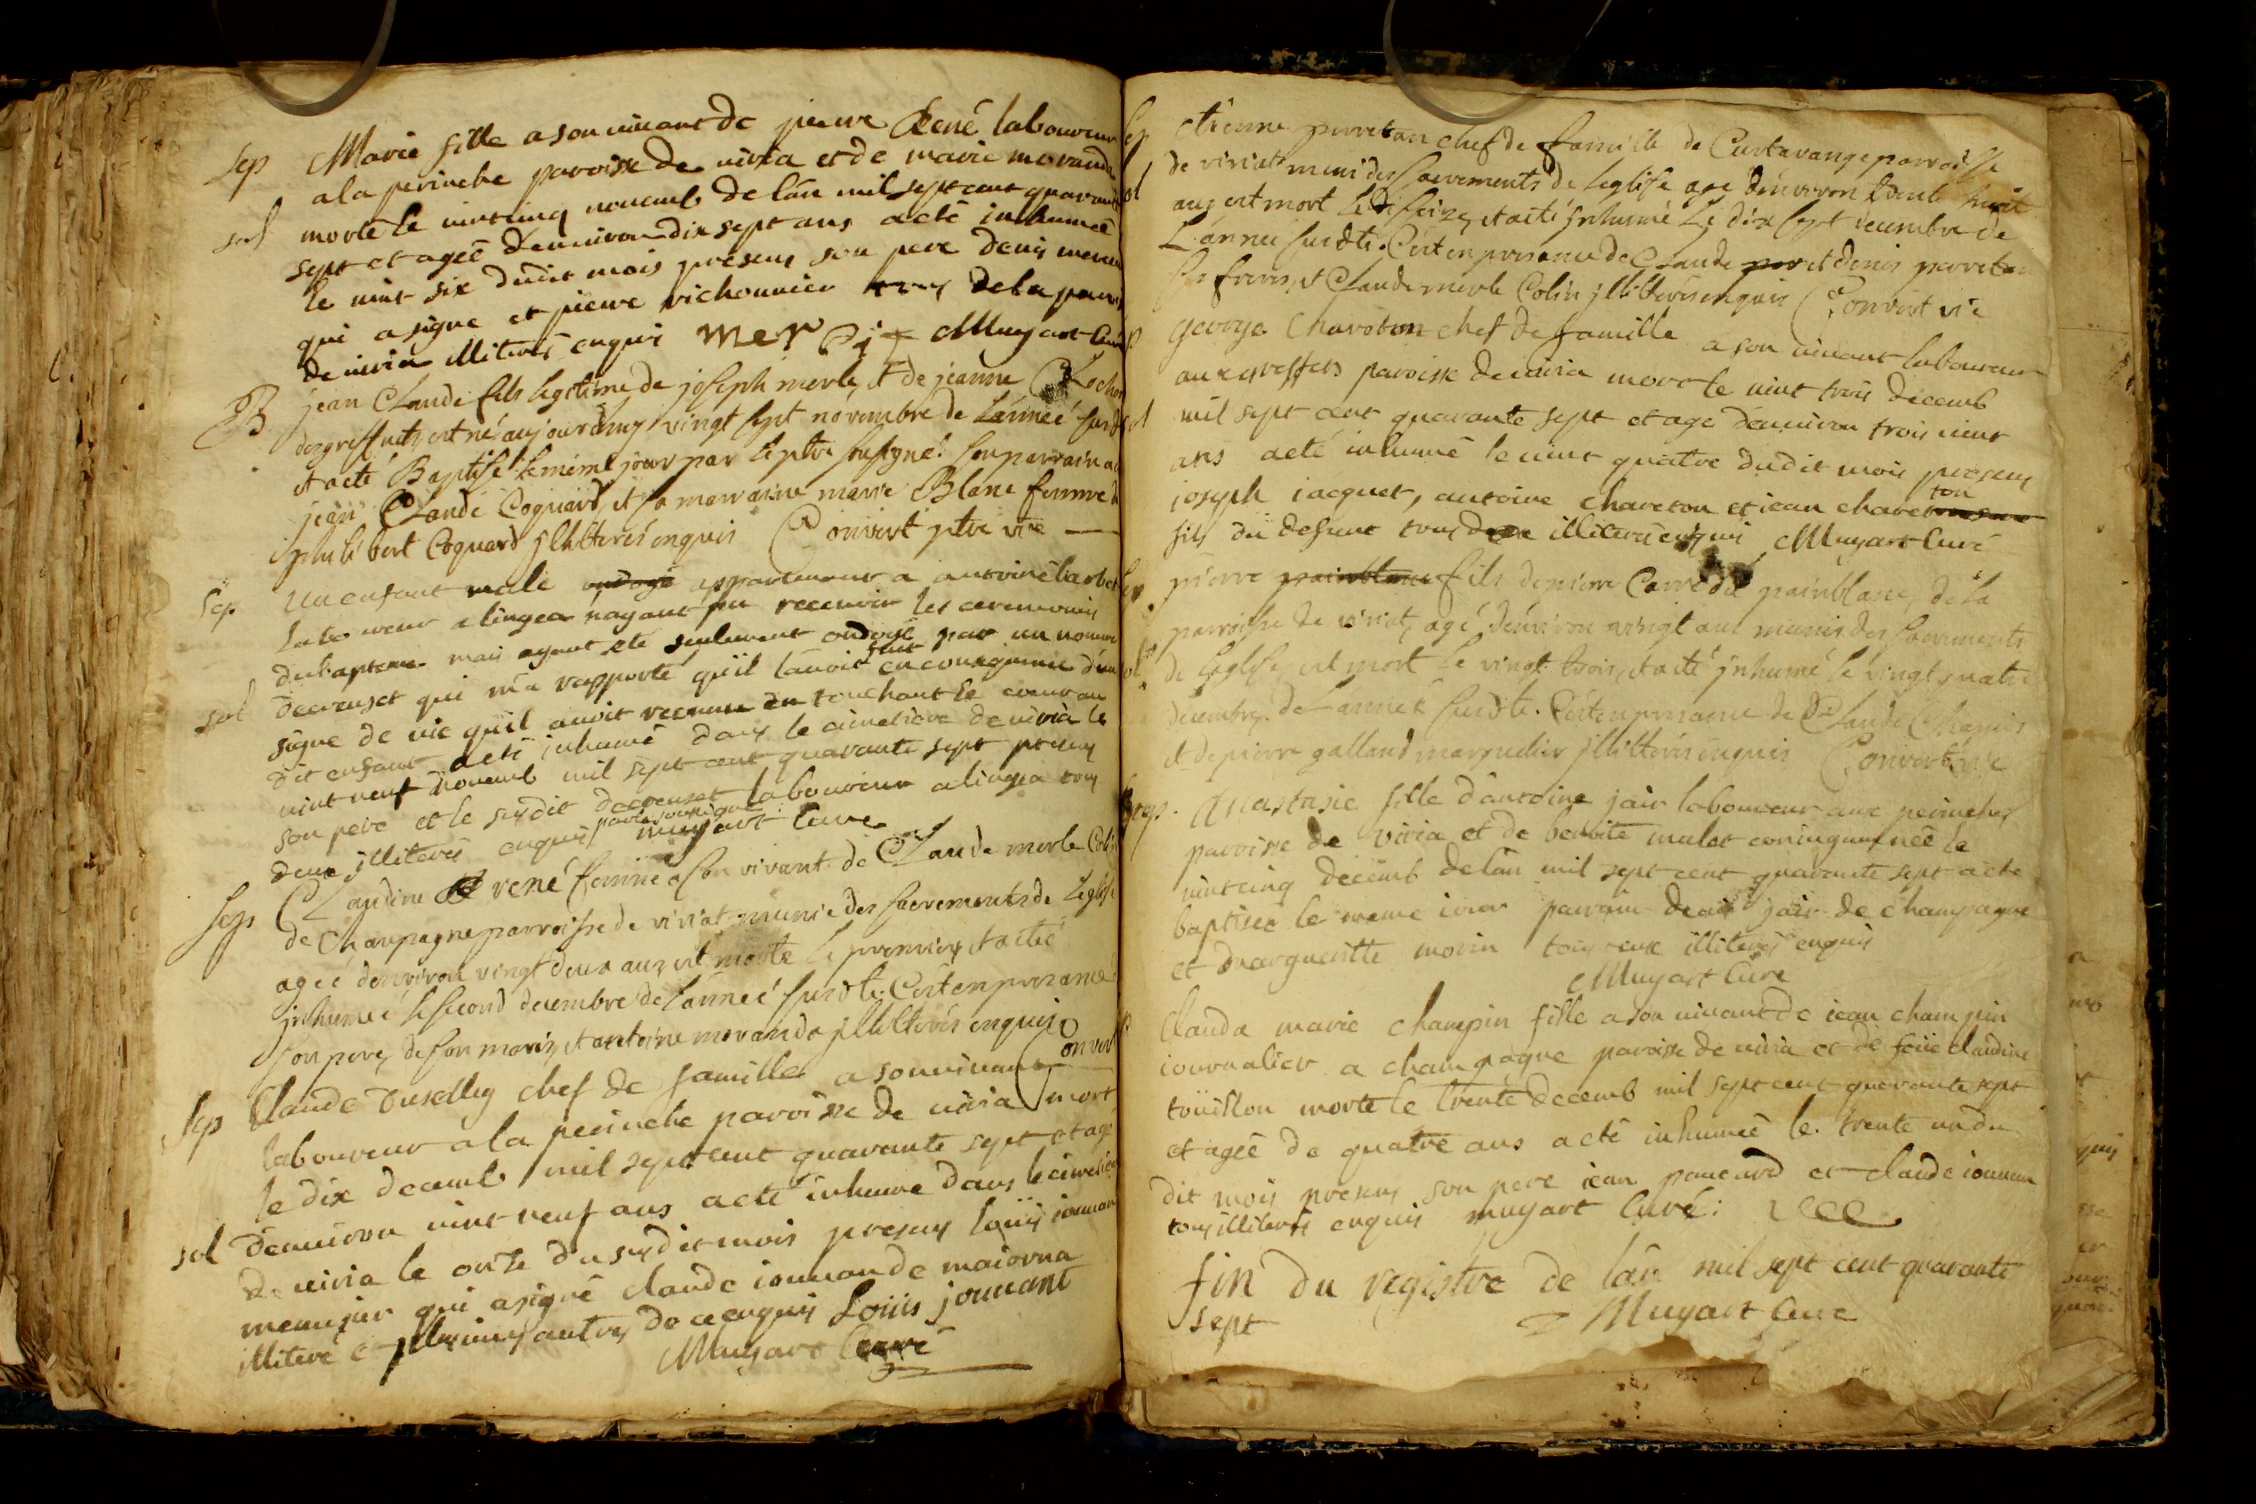 Sep Marie fille a son vivant de pierre René laboureur
a la perinche paroisse de viria et de marie morande
morte le vint cinq novemb de l'an mil sept cent quarante
sol sept et ageé d'environ dix sept ans a eté inhumeé
le vint six dudit mois presens son pere denis
qui a signe et pierre vichonnier tous de la
de viria illiteres enquis mer Muyart Curé
B jean Claude fils legitime de joseph merle, et de jeanne
est né aujourdhuy vingt sept novembre de L'anneé susd
et a eté Baptisé le même jour par le ptre soussigné: son parrain a
jean Claude Coquard, et sa marraine marie Blanc femme
philibert Coquard jllitterés enquis Convert ptre vre
Sep Un enfant male appartenant a antoine
laboureur a lingea nayant pu recevoir les ceremonies
du bapteme mais ayant eté seulement ondoié par un nommé
decreuset qui m'a rapporté qu'il l'avoit fait en consequence d'un
sol signe de vie quil avoit reconnu en touchant le coeur au
dit enfant a eté inhumé dans le cimetiere de viria le
vint neuf novemb mil sept cent quarante sept presens
son pere et le susdit decreuset laboureur a lingea tous
deux illiterés enquis par le soussigné muyart Curé
Sep Claudine René femme a son vivant de Claude merle Colin
de Champagne parroisse de viriat munie des sacrements de l'eglise
ageé d'environ vingt deux ans est morte le premier, et a eté
jnhumeé le second decembre de L'anneé susdte. C'est en presence
son pere, de son mari, et antoine morande jllitterés enquis
Convert
Sep Claude chef de famille a son vivant
laboureur a la perinche paroisse de viria mort
le dix decemb mil sept cent quarante sept et agé
d'environ vint neuf ans a eté inhumé dans le cimetiere
sol de viria le onze du susdit mois presens louis jouvan
menusier qui a signé claude jouvan de majorna
illiteré et plusieurs autres de ce enquis Louis jouvant
Muyart Curé
Sep etienne perretan chef de famille de Curtavange parroisse
de viriat muni des sacrements de l'eglise age d'environ huit
sol ans est mort le seize, et a eté jnhumé le dix sept decembre de
L'anneé susdte. C'est en presence de Claude per et denis perretan
ses freres, et Claude merle Colin jllitterés enquis Convert vre
george Chareton chef de famille a son vivant laboureur
aux greffets paroisse de viria mort le vint trois decemb
sol mil sept cent quarante sept et age d'environ trois vint
ans a eté inhumé le vint quatre dudit mois presens
joseph jacquet, antoine chareton et jean chareton
fils du defunt tous illiterés enquis Muyart Curé
pierre painblanc fils de pierre Carré dit painblanc, de la
parroisse de viriat, agé d'environ vingt ans munis des sacrements
de l'eglise, est mort le vingt trois, et a eté jnhumé le vingt quatre
decembre de L'année susdte. C'est en presence de Claude Chapuis
et de pierre galland marguelier jllitterés enquis Convert vre
Anastasie fille d'antoine jair laboureur aux perinches
paroisse de viria et de benoite mulet conjoints neé le
vint cinq decemb de l'an mil sept cent quarante sept a eté
baptisée le meme jour parain denis jair de champagne
et marguerite morin tous deux illiterés enquis
Muyart Curé
Claudа marie champin fille a son vivant de jean champin
journalier a champagne paroisse de viria et de feüe claudine
toüillon morte le trente decemb mil sept cent quarante sept
et ageé de quatre ans a eté inhumeé le trente un du
dit mois presens son pere jean pancard et claude jouvan
tous illiterés enquis muyart Curé:
fin du registre de l'an mil sept cent quarante
sept Muyart Cure